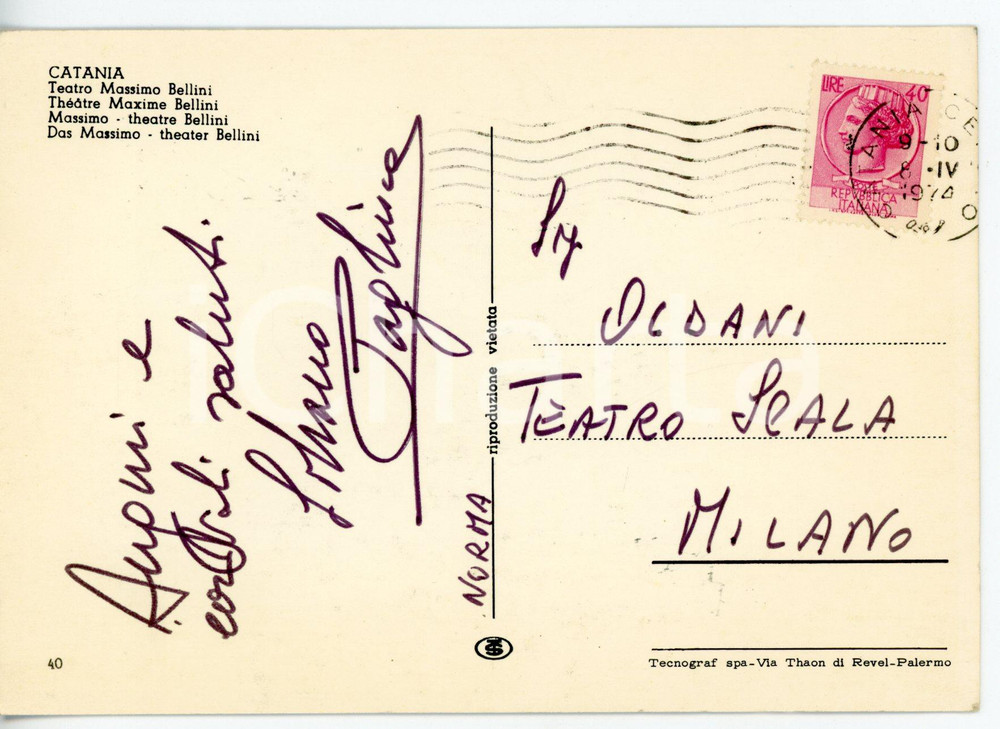 CATANIA
Teatro Massimo Bellini
Théâtre Maxime Bellini
Massimo - theatre Bellini
Das Massimo - theater Bellini
Auguri e
cordiali saluti
Silvano
Pagliuca
NORMA
riproduzione vietata
LIRE 40
POSTE
REPVBBLICA
ITALIANA
CATANIA CE
9-10
8 .IV
1974
Sig
OLDANI
TEATRO SCALA
MILANO
Tecnograf spa-Via Thaon di Revel-Palermo
40
iCharta